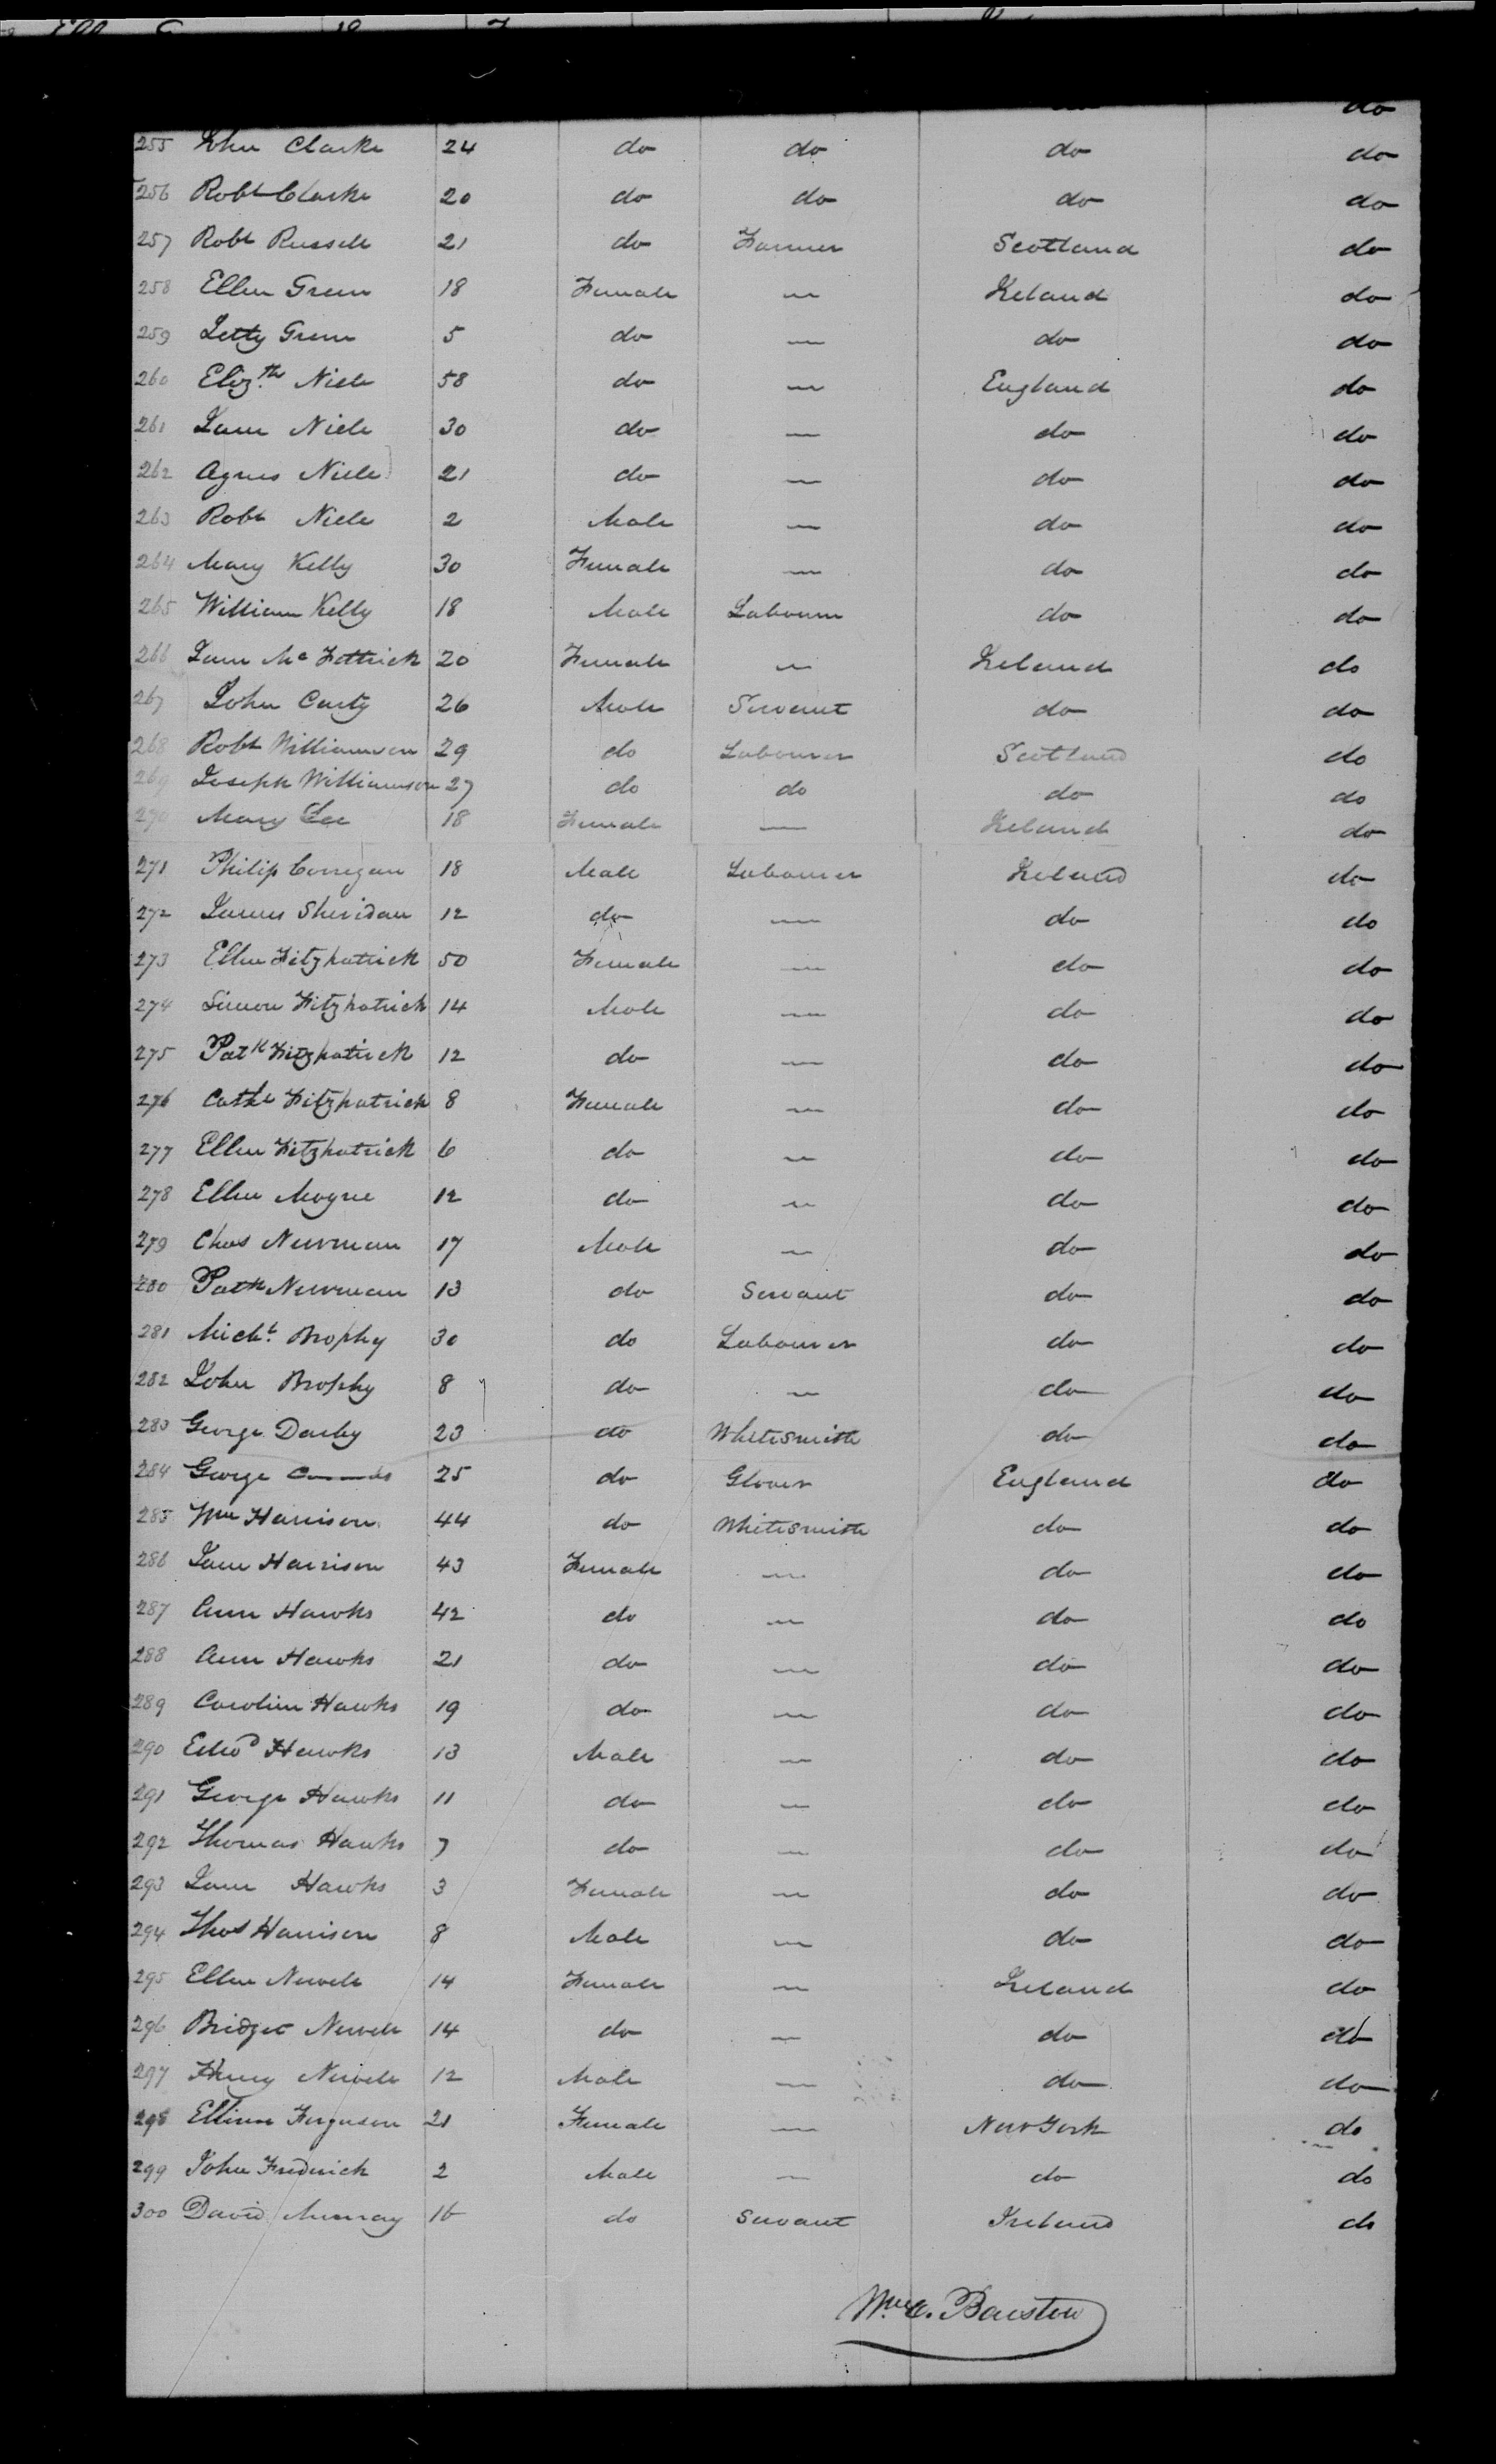 do
255 John Clarke 24 do do do do
256 Robt Clarke 20 do do do do
257 Robt Russell 21 do Farmer Scotland do
258 Ellen Green 18 Female — Ireland do
259 Letty Green 5 do — do do
260 Elizth Niele 58 do — England do
261 Jane Niele 30 do — do do
262 Agnes Niele 21 do — do do
263 Robt Niele 2 Male — do do
264 Mary Kelly 30 Female — do do
265 William Kelly 18 Male Labourer do do
266 Jane Mc Fettrick 20 Female — Ireland do
267 John Carty 26 Male Servant do do
268 Robt Williamson 29 do Labourer Scotland do
269 Joseph Williamson 27 do do do do
270 Mary Lee 18 Female — Ireland do
271 Philip Corregan 18 Male Labourer Ireland do
272 James Sheridan 12 do — do do
273 Ellen Fitzpatrick 50 Female — do do
274 Simon Fitzpatrick 14 Male — do do
275 Patk Fitzpatrick 12 do — do do
276 Cathe Fitzpatrick 8 Female — do do
277 Ellen Fitzpatrick 6 do — do do
278 Ellen Moyne 12 do — do do
279 Chas Newman 17 Male — do do
280 Patk Newman 13 do Servant do do
281 Michl. Brophy 30 do Labourer do do
282 John Brophy 8 do — do do
283 George Darby 23 do Whitesmith do do
284 George 25 do Glover England do
285 Wm Harrison 44 do Whitesmith do do
286 Jane Harrison 43 Female — do do
287 Ann Hawks 42 do — do do
288 Ann Hawks 21 do — do do
289 Caroline Hawks 19 do — do do
290 Edwd Hawks 13 Male — do do
291 George Hawks 11 do — do do
292 Thomas Hawks 7 do — do do
293 Jane Hawks 3 Female — do do
294 Thos Harrison 8 Male — do do
295 Ellen Newele 14 Female — Ireland do
296 Bridget Newele 14 do — do do
297 Henry Newele 12 Male — do do
298 Ellinor Ferguson 21 Female — New York do
299 John Fredrick 2 Male — do do
300 David Murray 16 do Servant Ireland do
Wm C. Barstow